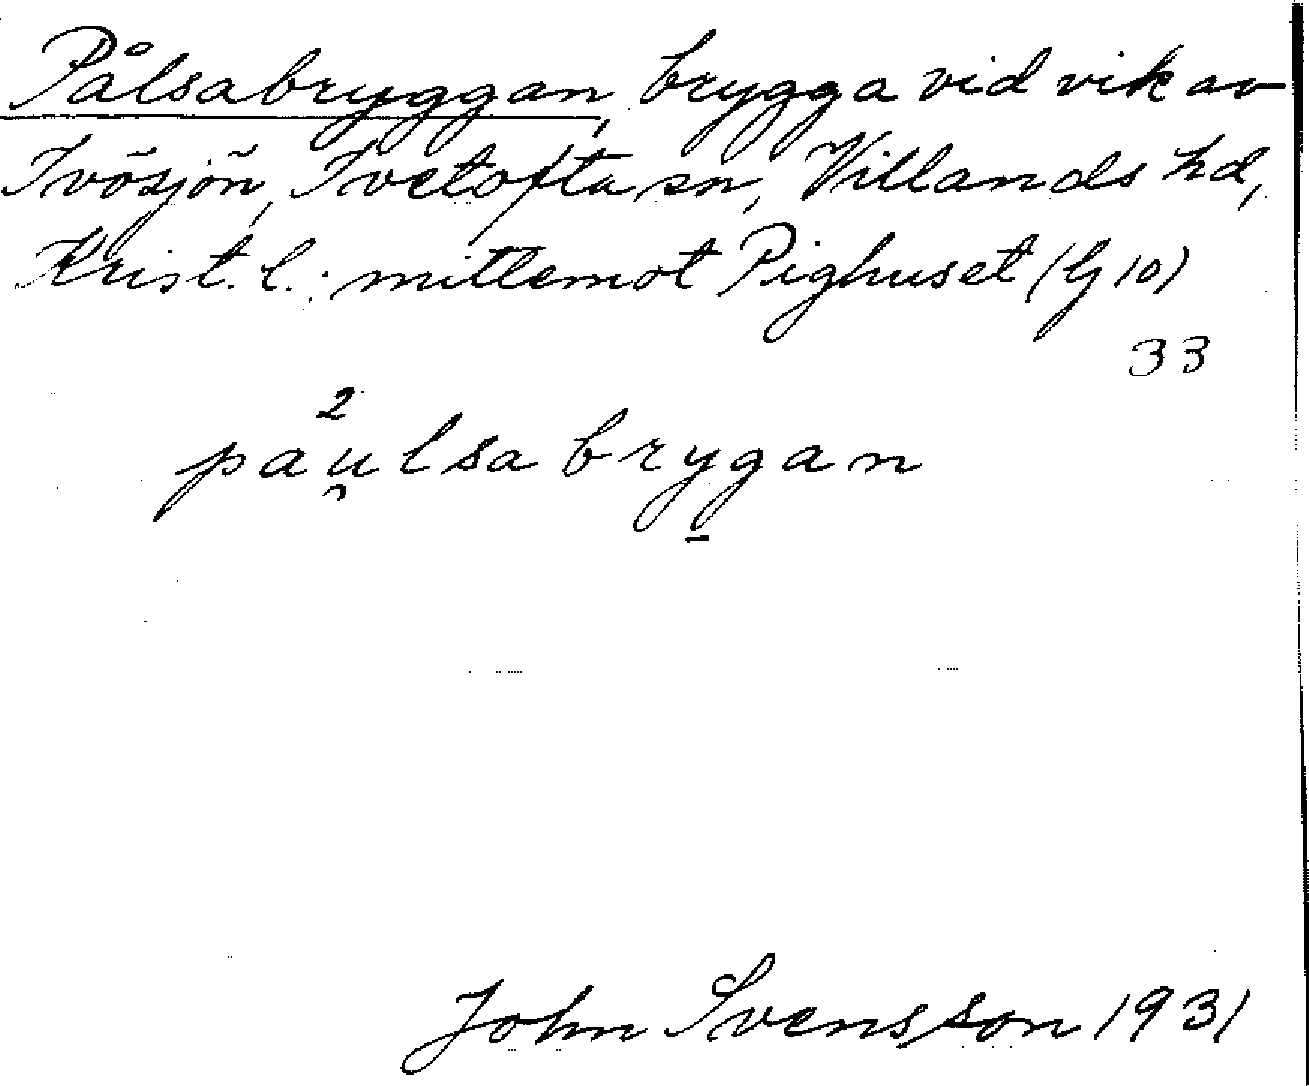 Pålsabryggan, brygga vid vik av
Ivösjön, Ivetofta sn, Villands hd,
Krist. l.; mittemot Pighuset (G 10)
33
2
paulsabrygan
John Svensson 1931